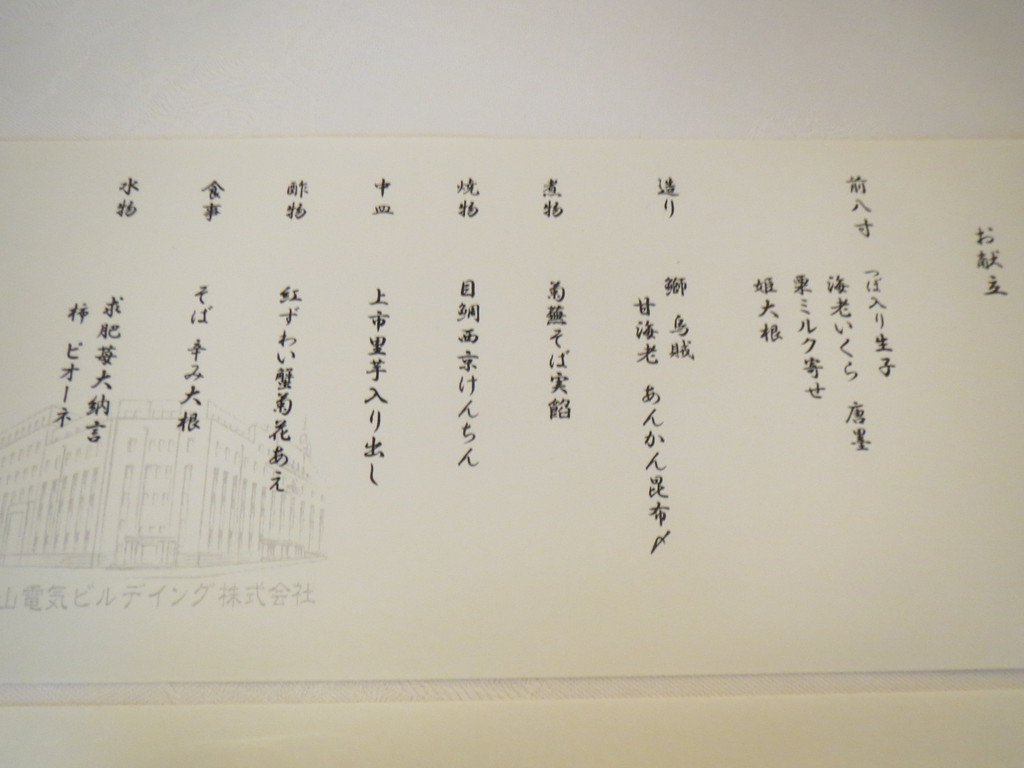 お献立
前八寸 つぼ入り生子
海老いくら 唐墨
栗ミルク寄せ
姫大根
造り 鰤 烏賊
甘海老 あんかん昆布〆
煮物 菊蕪そば実餡
焼物 目鯛西京けんちん
中皿 上市里芋入り出し
酢物 紅ずわい蟹菊花あえ
食事 そば 辛み大根
水物 求肥苺大納言
柿 ピオーネ
山電気ビルデイング株式会社